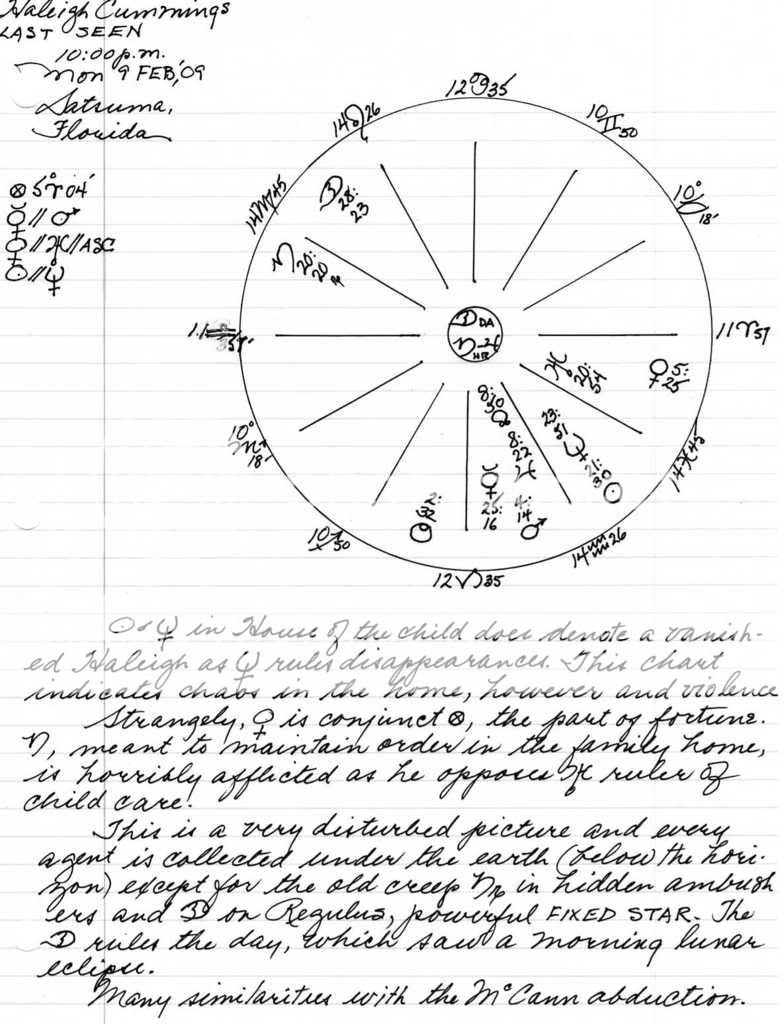 Haleigh Cummings
LAST SEEN
10:00 p.m.
Mon 9 FEB,'09
Satsuma,
Florida
⊗ 5°♈04'
☿ // ♂
♀ // ♅ // ASC
☉ // ♆
12♋35
10♊50
10°♉18'
11♈57
14♓45
14♒26
12♑35
10♐50
10°♏18'
11♎57'
14♍45
14♌26
☽ 28:23
♄ 20:20 ℞
☽ DA
♄-♃ HR
♅ 20:54
♀ 5:25
23:51 ♆
21:30 ☉
8:50 ☊
8:22 ♃
4:14 ♂
☿ 25:16
2:32
☉ ☌ ♆ in House of the child does denote a vanish-
ed Haleigh as ♆ rules disappearances. This chart
indicates chaos in the home, however and violence
Strangely, ♀ is conjunct ⊗, the part of fortune.
♄, meant to maintain order in the family home,
is horribly afflicted as he opposes ♅ ruler of
child care.
This is a very disturbed picture and every
agent is collected under the earth (below the hori-
zon) except for the old creep ♄℞ in hidden ambush
ers and ☽ on Regulus, powerful FIXED STAR. The
☽ rules the day, which saw a morning lunar
eclipse.
Many similarities with the McCann abduction.